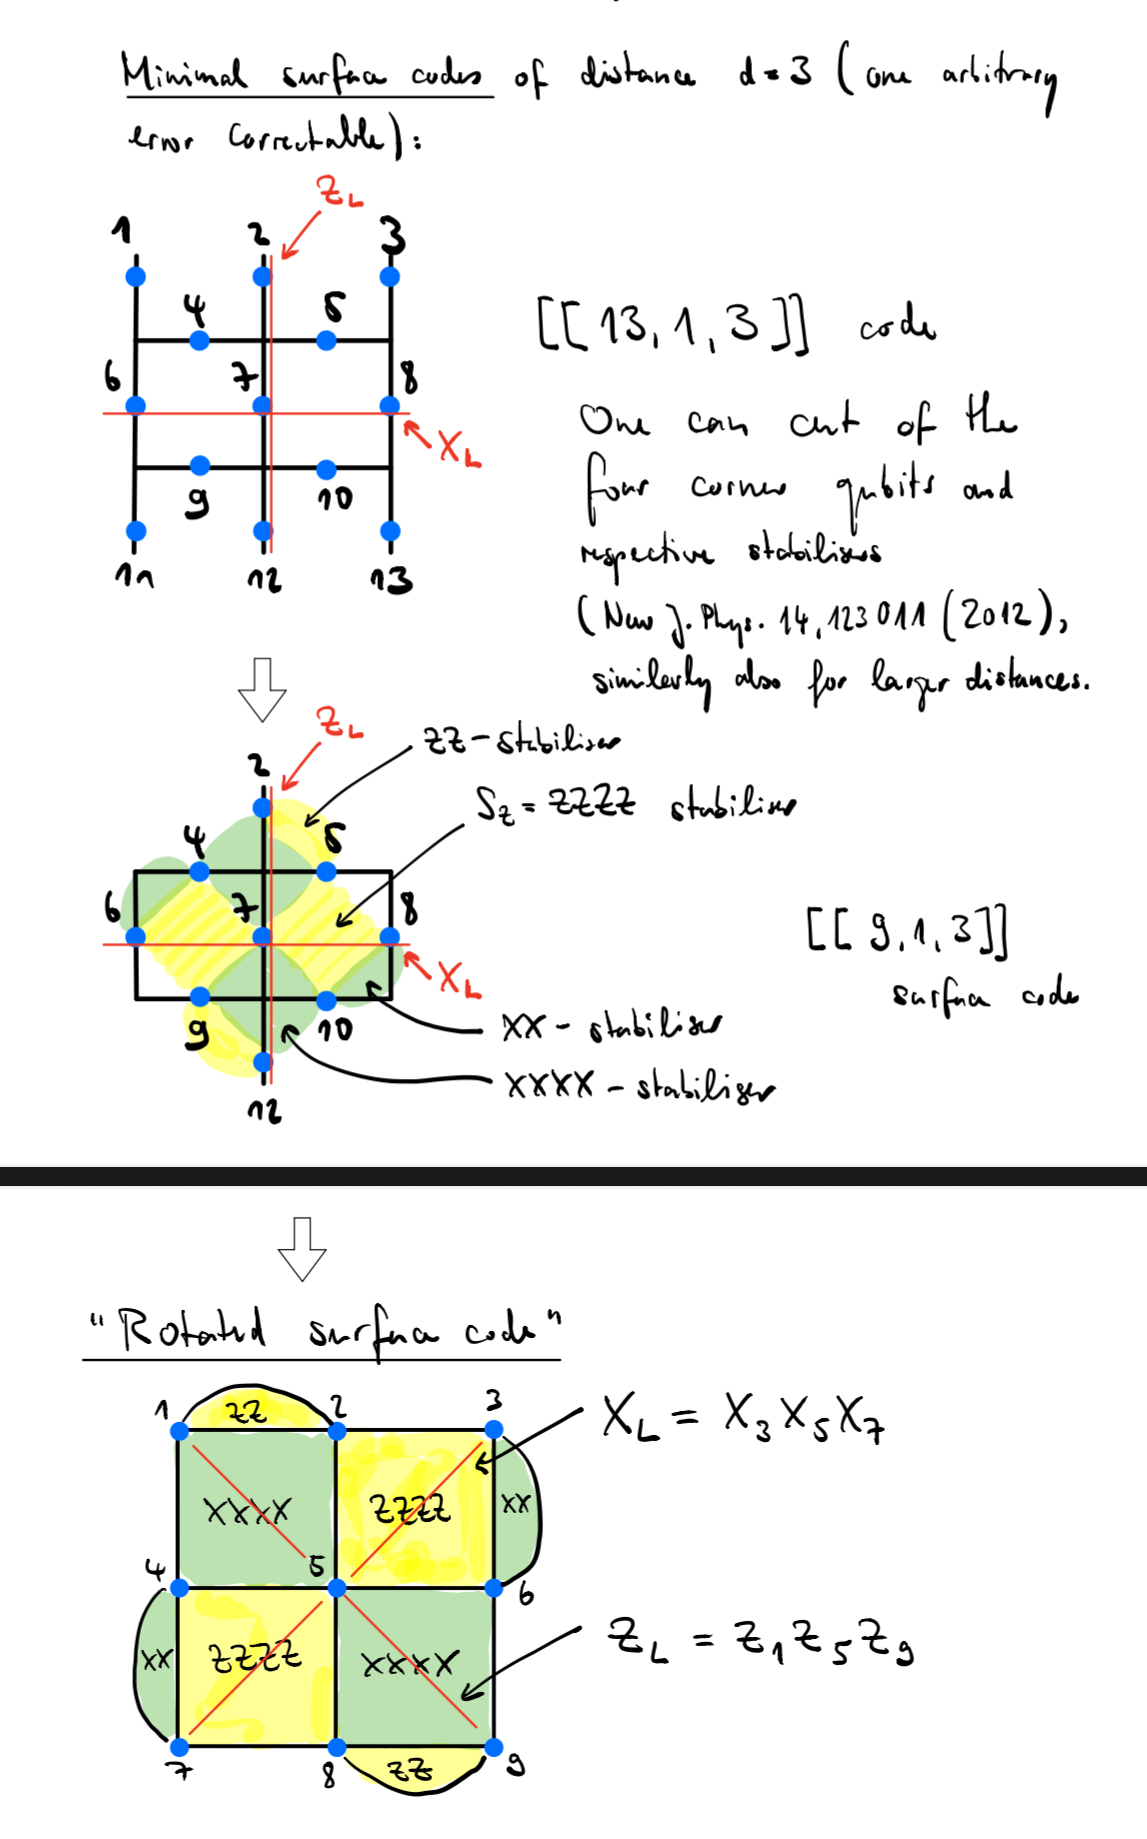 Minimal surface codes of distance d=3 (one arbitrary
error correctable):
Z_L
1 2 3
4 5
6 7 8
X_L
9 10
11 12 13
[[13,1,3]] code
One can cut of the
four corner qubits and
respective stabilisers
(New J. Phys. 14, 123011 (2012),
similarly also for larger distances.
Z_L
ZZ-stabiliser
2
S_Z = ZZZZ stabiliser
4 5
6 7 8
X_L
[[9,1,3]]
surface code
9 10
XX-stabiliser
XXXX-stabiliser
12
"Rotated surface code"
1 ZZ 2 3
X_L = X_3 X_5 X_7
XXXX ZZZZ XX
4 5 6
Z_L = Z_1 Z_5 Z_9
XX ZZZZ XXXX
7 8 ZZ 9